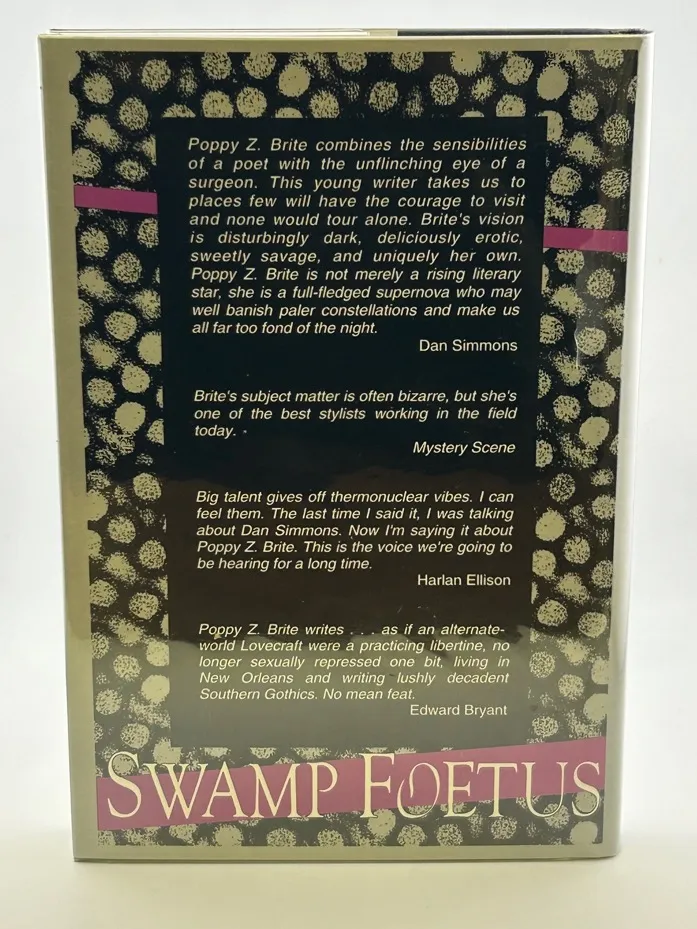 Poppy Z. Brite combines the sensibilities
of a poet with the unflinching eye of a
surgeon. This young writer takes us to
places few will have the courage to visit
and none would tour alone. Brite's vision
is disturbingly dark, deliciously erotic,
sweetly savage, and uniquely her own.
Poppy Z. Brite is not merely a rising literary
star, she is a full-fledged supernova who may
well banish paler constellations and make us
all far too fond of the night.
Dan Simmons
Brite's subject matter is often bizarre, but she's
one of the best stylists working in the field
today.
Mystery Scene
Big talent gives off thermonuclear vibes. I can
feel them. The last time I said it, I was talking
about Dan Simmons. Now I'm saying it about
Poppy Z. Brite. This is the voice we're going to
be hearing for a long time.
Harlan Ellison
Poppy Z. Brite writes . . . as if an alternate-
world Lovecraft were a practicing libertine, no
longer sexually repressed one bit, living in
New Orleans and writing lushly decadent
Southern Gothics. No mean feat.
Edward Bryant
SWAMP FOETUS